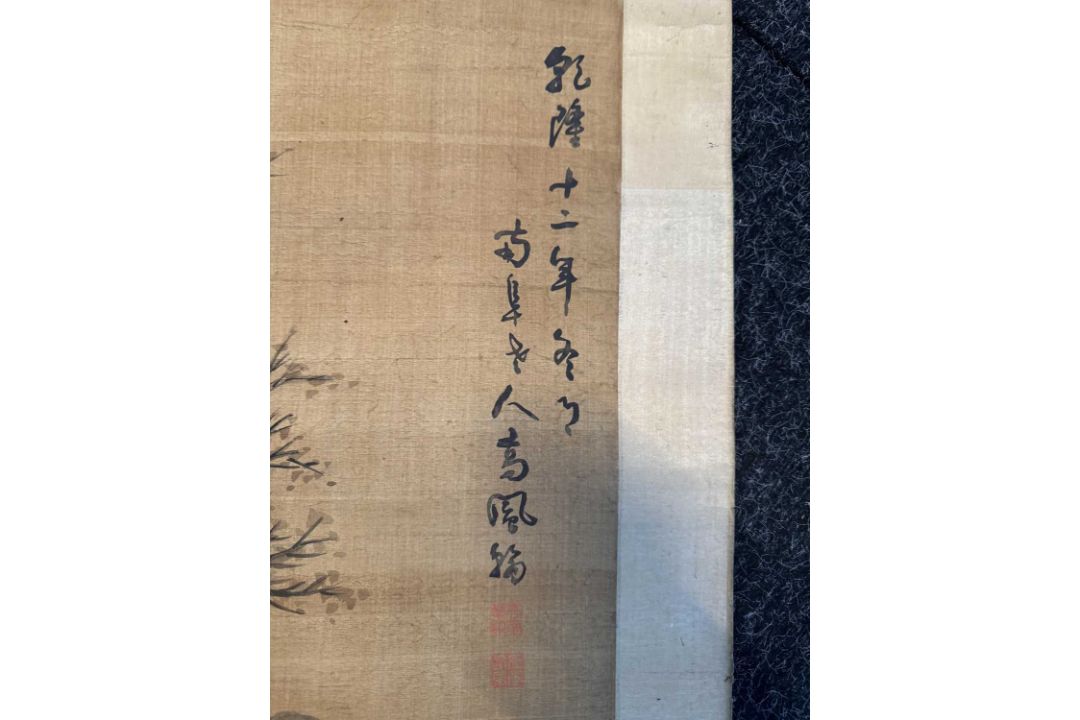 乾隆十二年冬日
南阜老人高鳳翰